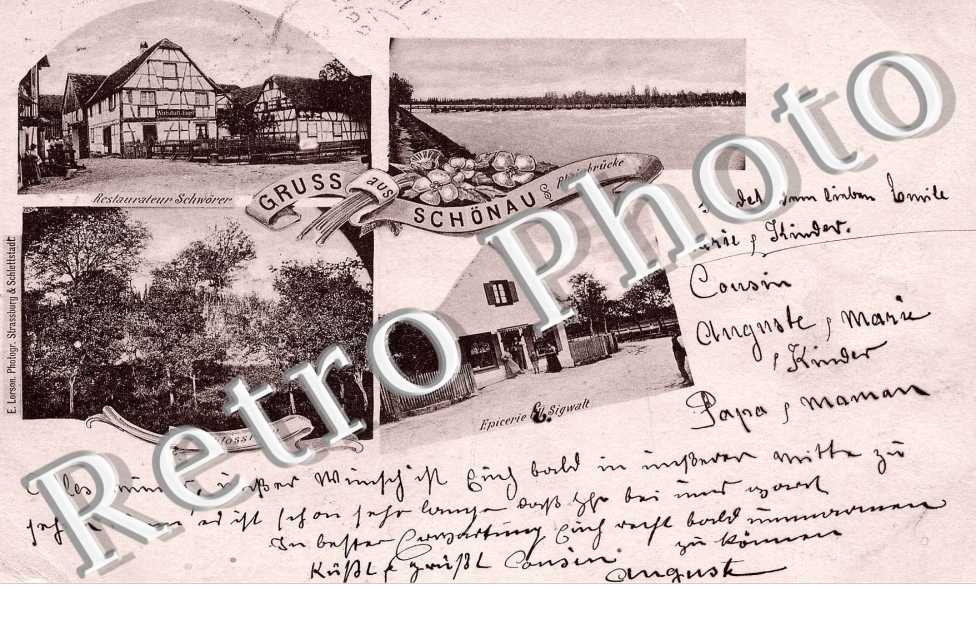 Wirtschaft
Restaurateur Schwörer
GRUSS aus SCHÖNAU
Rheinbrücke
E. Lorson. Photogr. Strassburg & Schlettstadt
Epicerie E. Sigwalt
lieben Emile
Marie & Kinder.
Cousin
Auguste & Marie
& Kinder
Papa & Maman
Wunsch ist Euch bald in unserer Mitte zu
es ist schon sehr lange daß Ihr bei uns wart
In bester Erwartung Euch recht bald umarmen
zu können
Küßt & grüßt Cousin
Auguste
Retro Photo